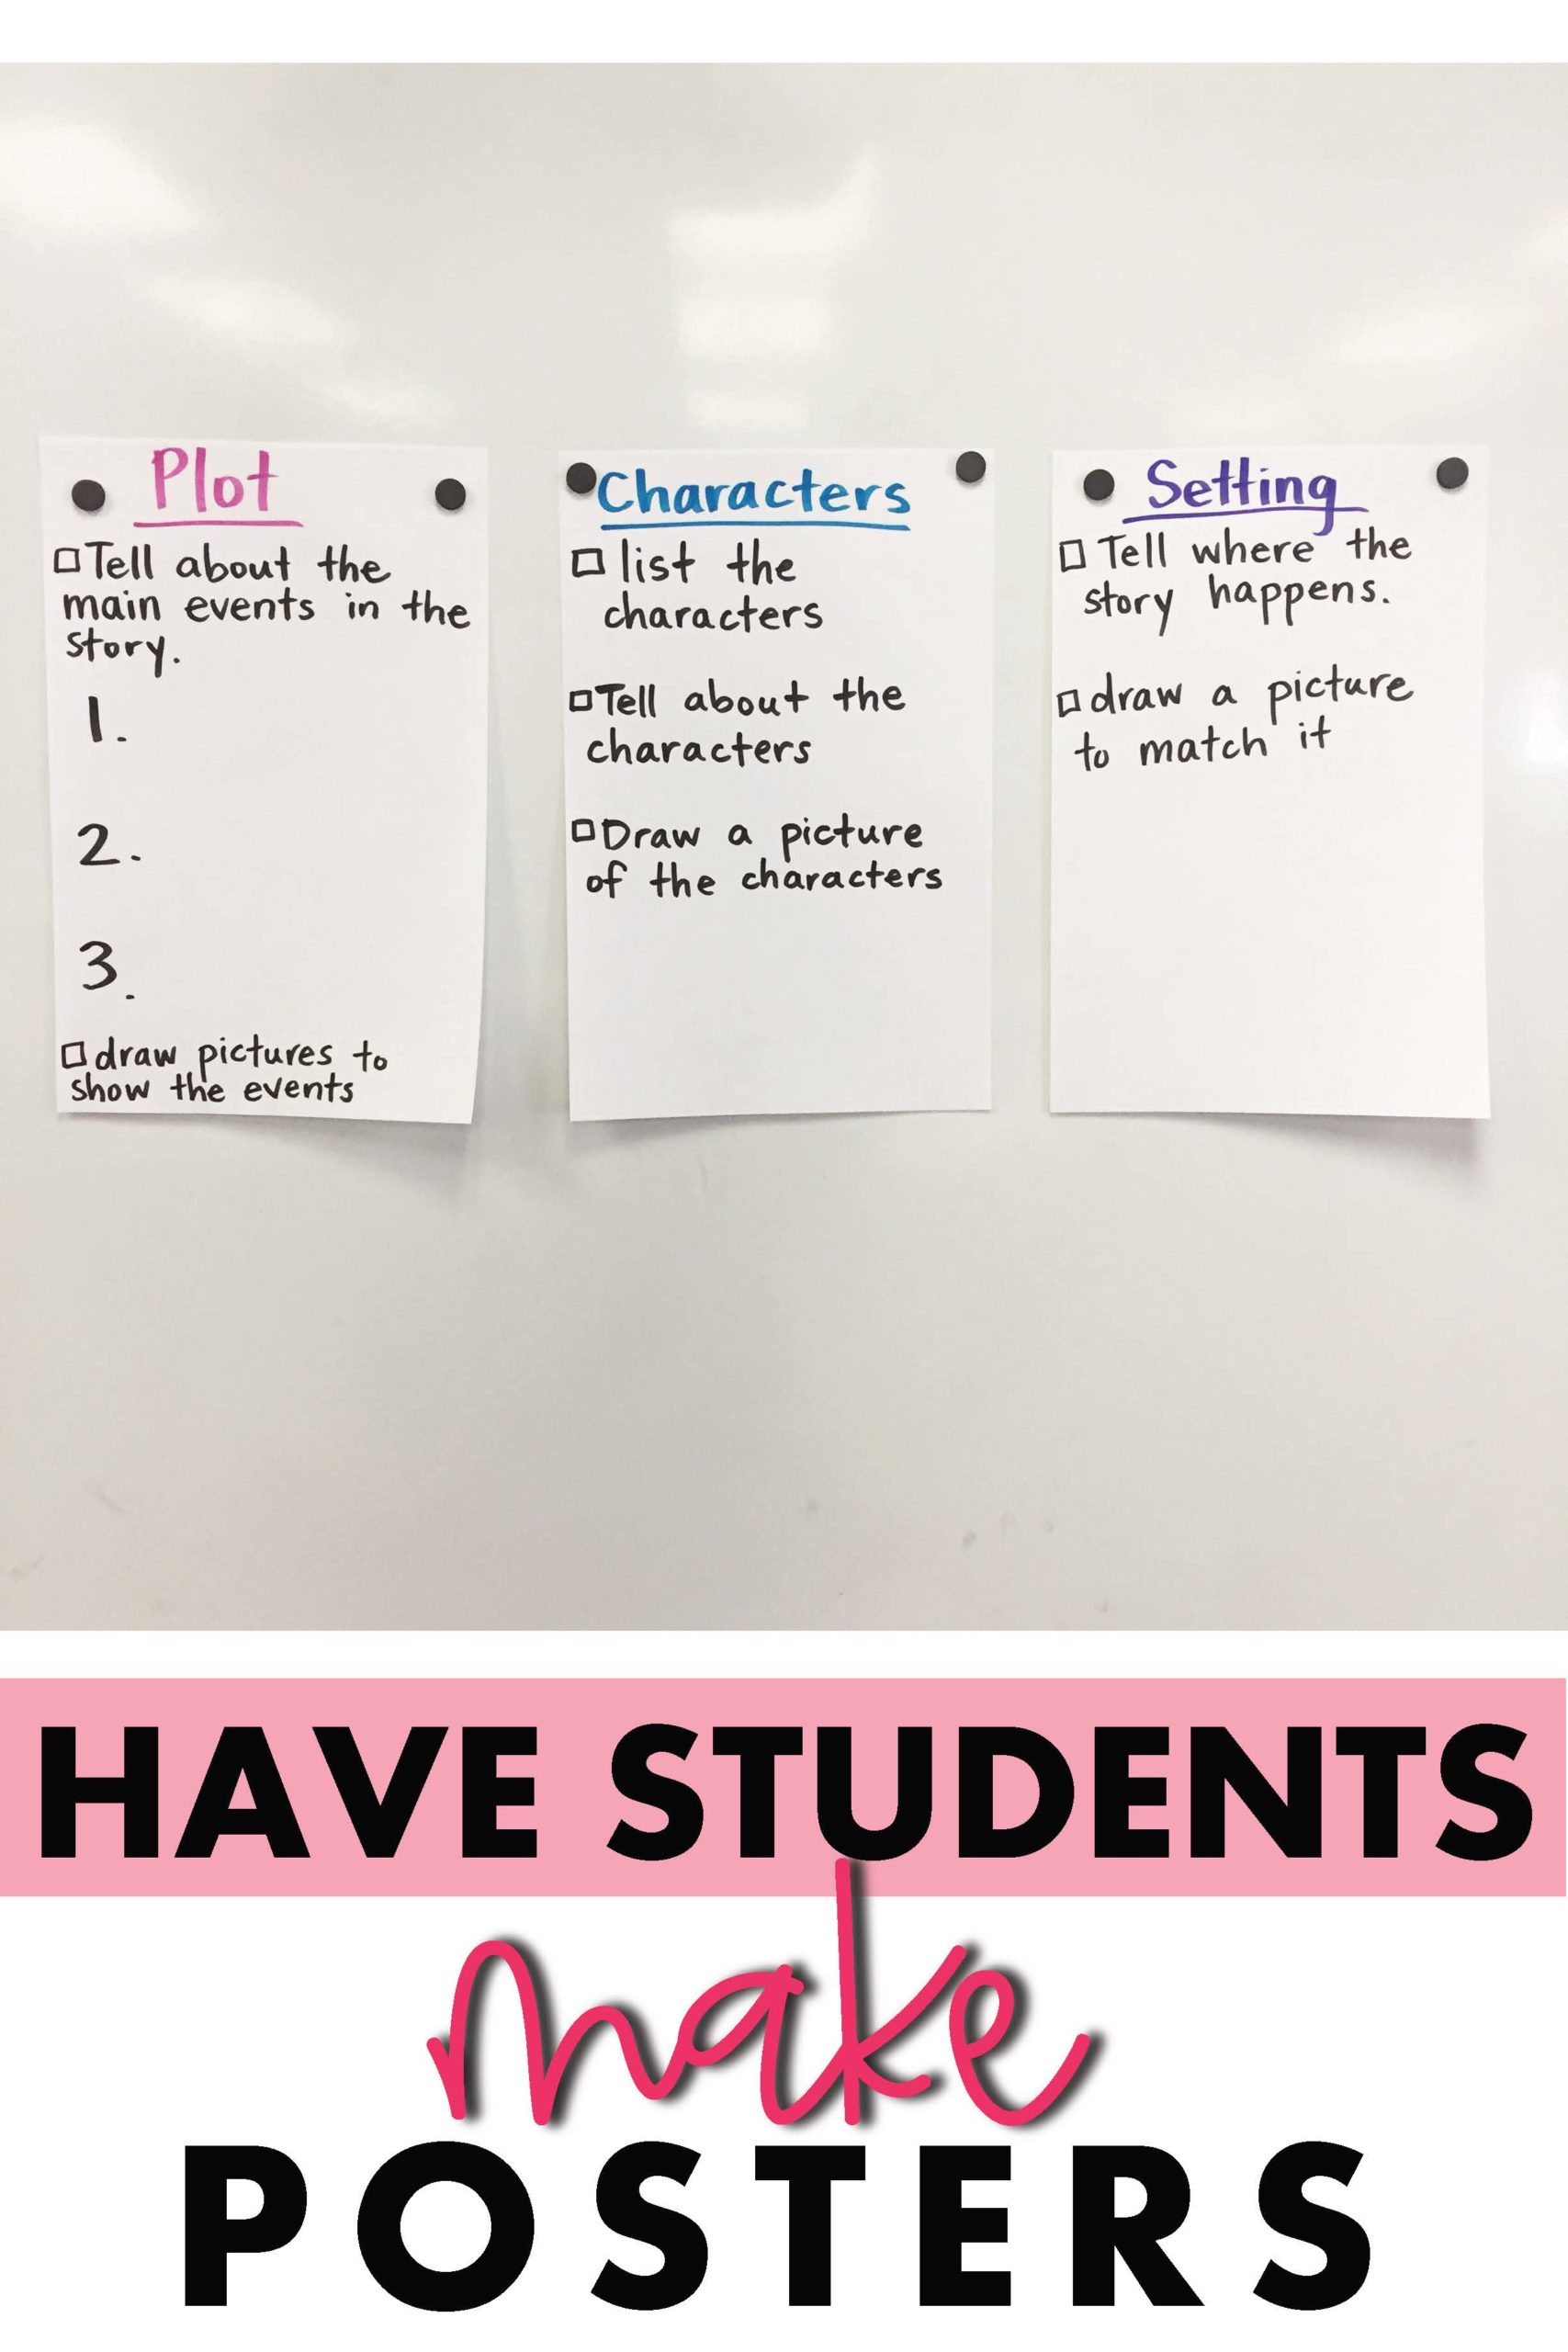 Plot
Tell about the
main events in the
story.
1.
2.
3.
draw pictures to
show the events
Characters
list the
characters
Tell about the
characters
Draw a picture
of the characters
Setting
Tell where the
story happens.
draw a picture
to match it
HAVE STUDENTS
make
POSTERS